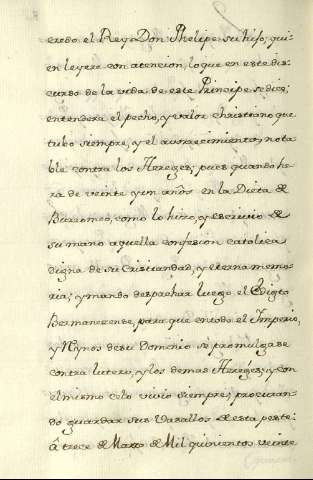 eredo el Rey Don Phelipe su hijo, qui-
en leyere con atencion, lo que en este dis-
curso de la vida de este Principe se dice;
entenderá el pecho, y valor christiano que
tubo siempre, y el avorrecimiento nota-
ble contra los Hereges; pues quando he-
ra de veinte y un años en la Dieta de
como lo hizo, y escrivio de
su mano aquella confesion catolica
digna de su Cristiandad, y eterna memo-
ria; y mando despachar luego el
para que en todo el Imperio,
y Rynos de su Dominio se promulgase
contra lutero, y los demas Hereges; y con
el mismo celo vivio siempre, procuran-
do guardar sus Vasallos de esta peste:
â trece de Marzo de Mil quinientos veinte